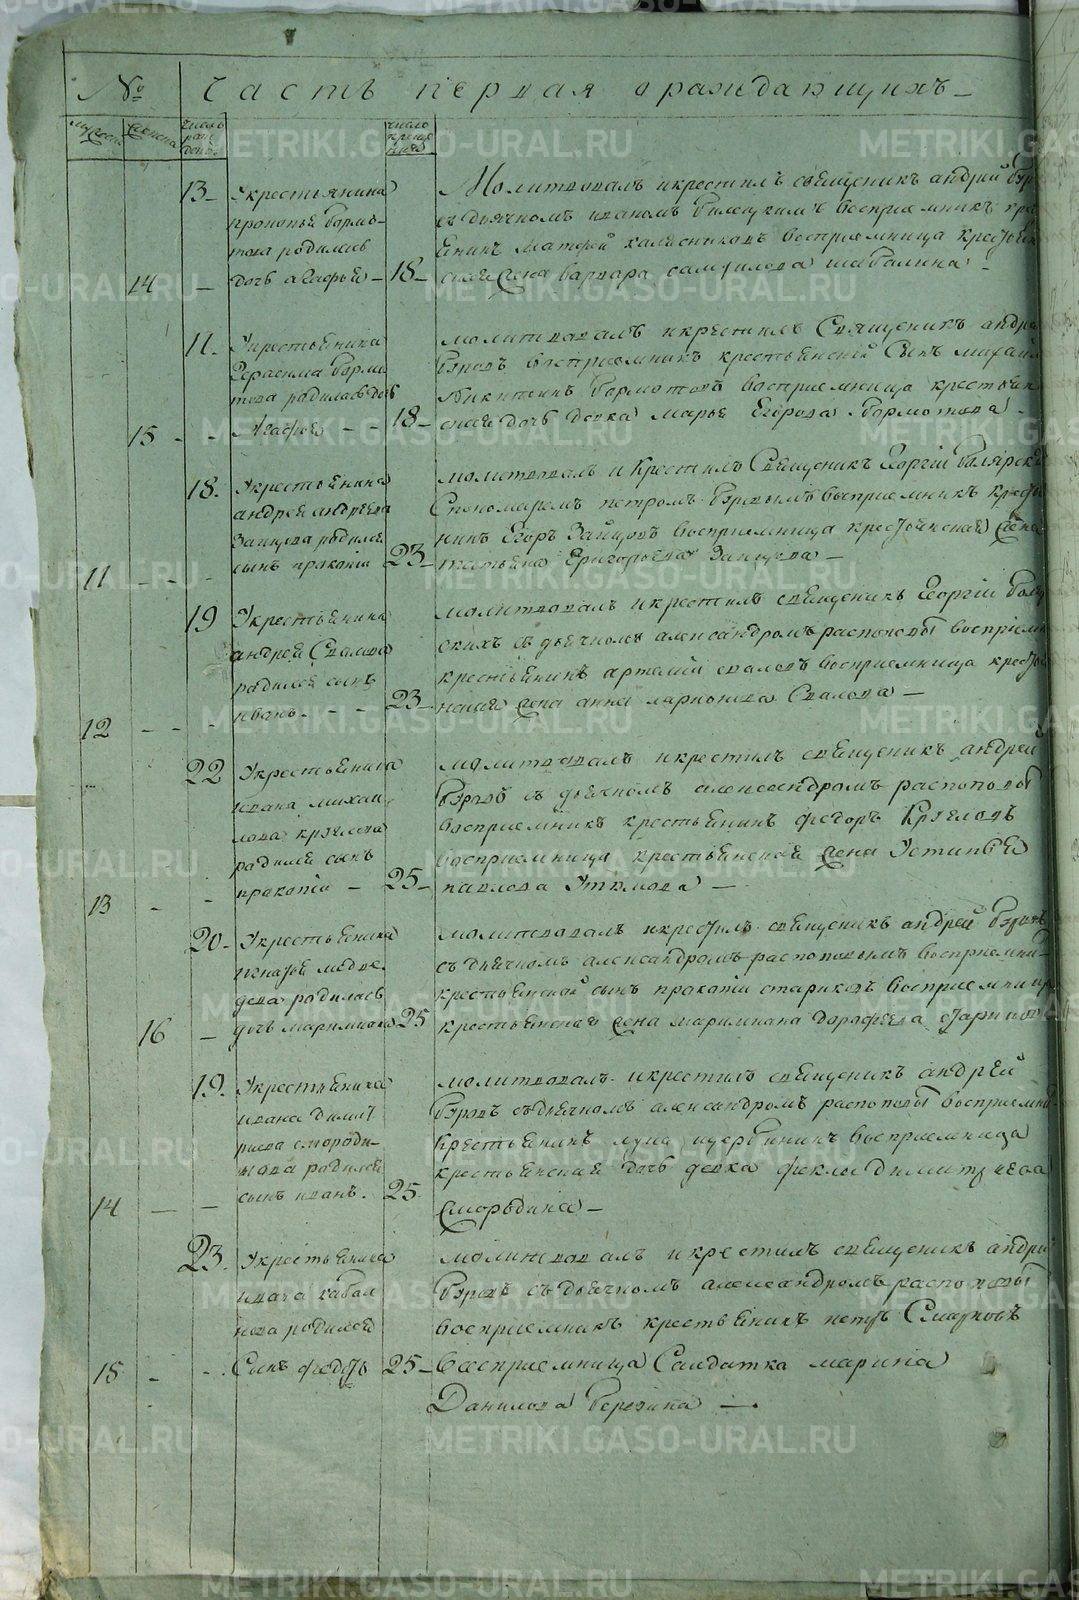 № Часть первая о раждающихъ
мужеска женска число рожденія число крещенія
13 Укрестьянина
прокопья Бормо-
това родилась
14 дочь агафья 18
Молитвовалъ икрестилъ священикъ андрей
съ дьячкомъ иваномъ восприемникъ кре
енинъ Матфей калисниковъ восприемница крестьен
ская жена варвара самуилова шабалина
11 Укрестьянина
Герасима Борми
това родилась дочь
15 Агафья 18
молитвовалъ икрестилъ Священикъ андре
восприемникъ крестьянской Сынъ михаил
Никитинъ бормотовъ восприемница крестьян
ская дочь девка марья Егорова бормотова
18 Укрестьянина
андрея андреева
Зайцова родился
11 сынъ пракопiй 23
молитвовалъ и крестилъ Священикъ Георгiй
Спономаремъ петромъ восприемникъ кресть
нинъ Егоръ Зайцовъ восприемница крестьянская жена
татьяна Григорьева Зайцова
19 Укрестьянина
андрея Свалова
родился сынъ
12 иванъ 23
молитвовалъ икрестилъ священикъ Георгiй
скихъ съ дьячкомъ александромъ распоповы восприем
крестьенинъ артемiй сваловъ восприемница кресть
ская жена анна ларионова Свалова
22 Укрестьянина
ивана михаи
лова круглова
родился сынъ
13 пракопiй 25
молитвовалъ икрестилъ священикъ андрей
съ дьячкомъ александромъ распоповы
восприемникъ крестьенинъ федоръ Кругловъ
восприемница крестьянская жена Устинья
павлова Утюмова
20 Укрестьянина
игнатья медве
дева родилась
16 дочь маримиана 25
молитвовалъ икрестилъ священикъ андрей
съ дьячкомъ александромъ распоповымъ восприемни
крестьянской сынъ пракопiй стариковъ восприемница
крестьянская жена маримиана дорофеева старикова
19 Укрестьянина
ивана димит
риева смороди-
нова родился
14 сынъ иванъ 25
молитвовалъ икрестилъ священикъ андрей
съдьячкомъ александромъ распоповы восприемни
крестьенинъ лука восприемница
крестьянская дочь девка фекла димитриева
смородина
23 Укрестьянина
ивана кабал
нова родился
15 Сынъ федотъ 25
молитвовалъ икрестилъ священикъ андрей
съ дьячкомъ александромъ распоповы
восприемникъ крестьенинъ петръ
восприемница Салдатка марина
Данилова березина
METRIKI.GASO-URAL.RU